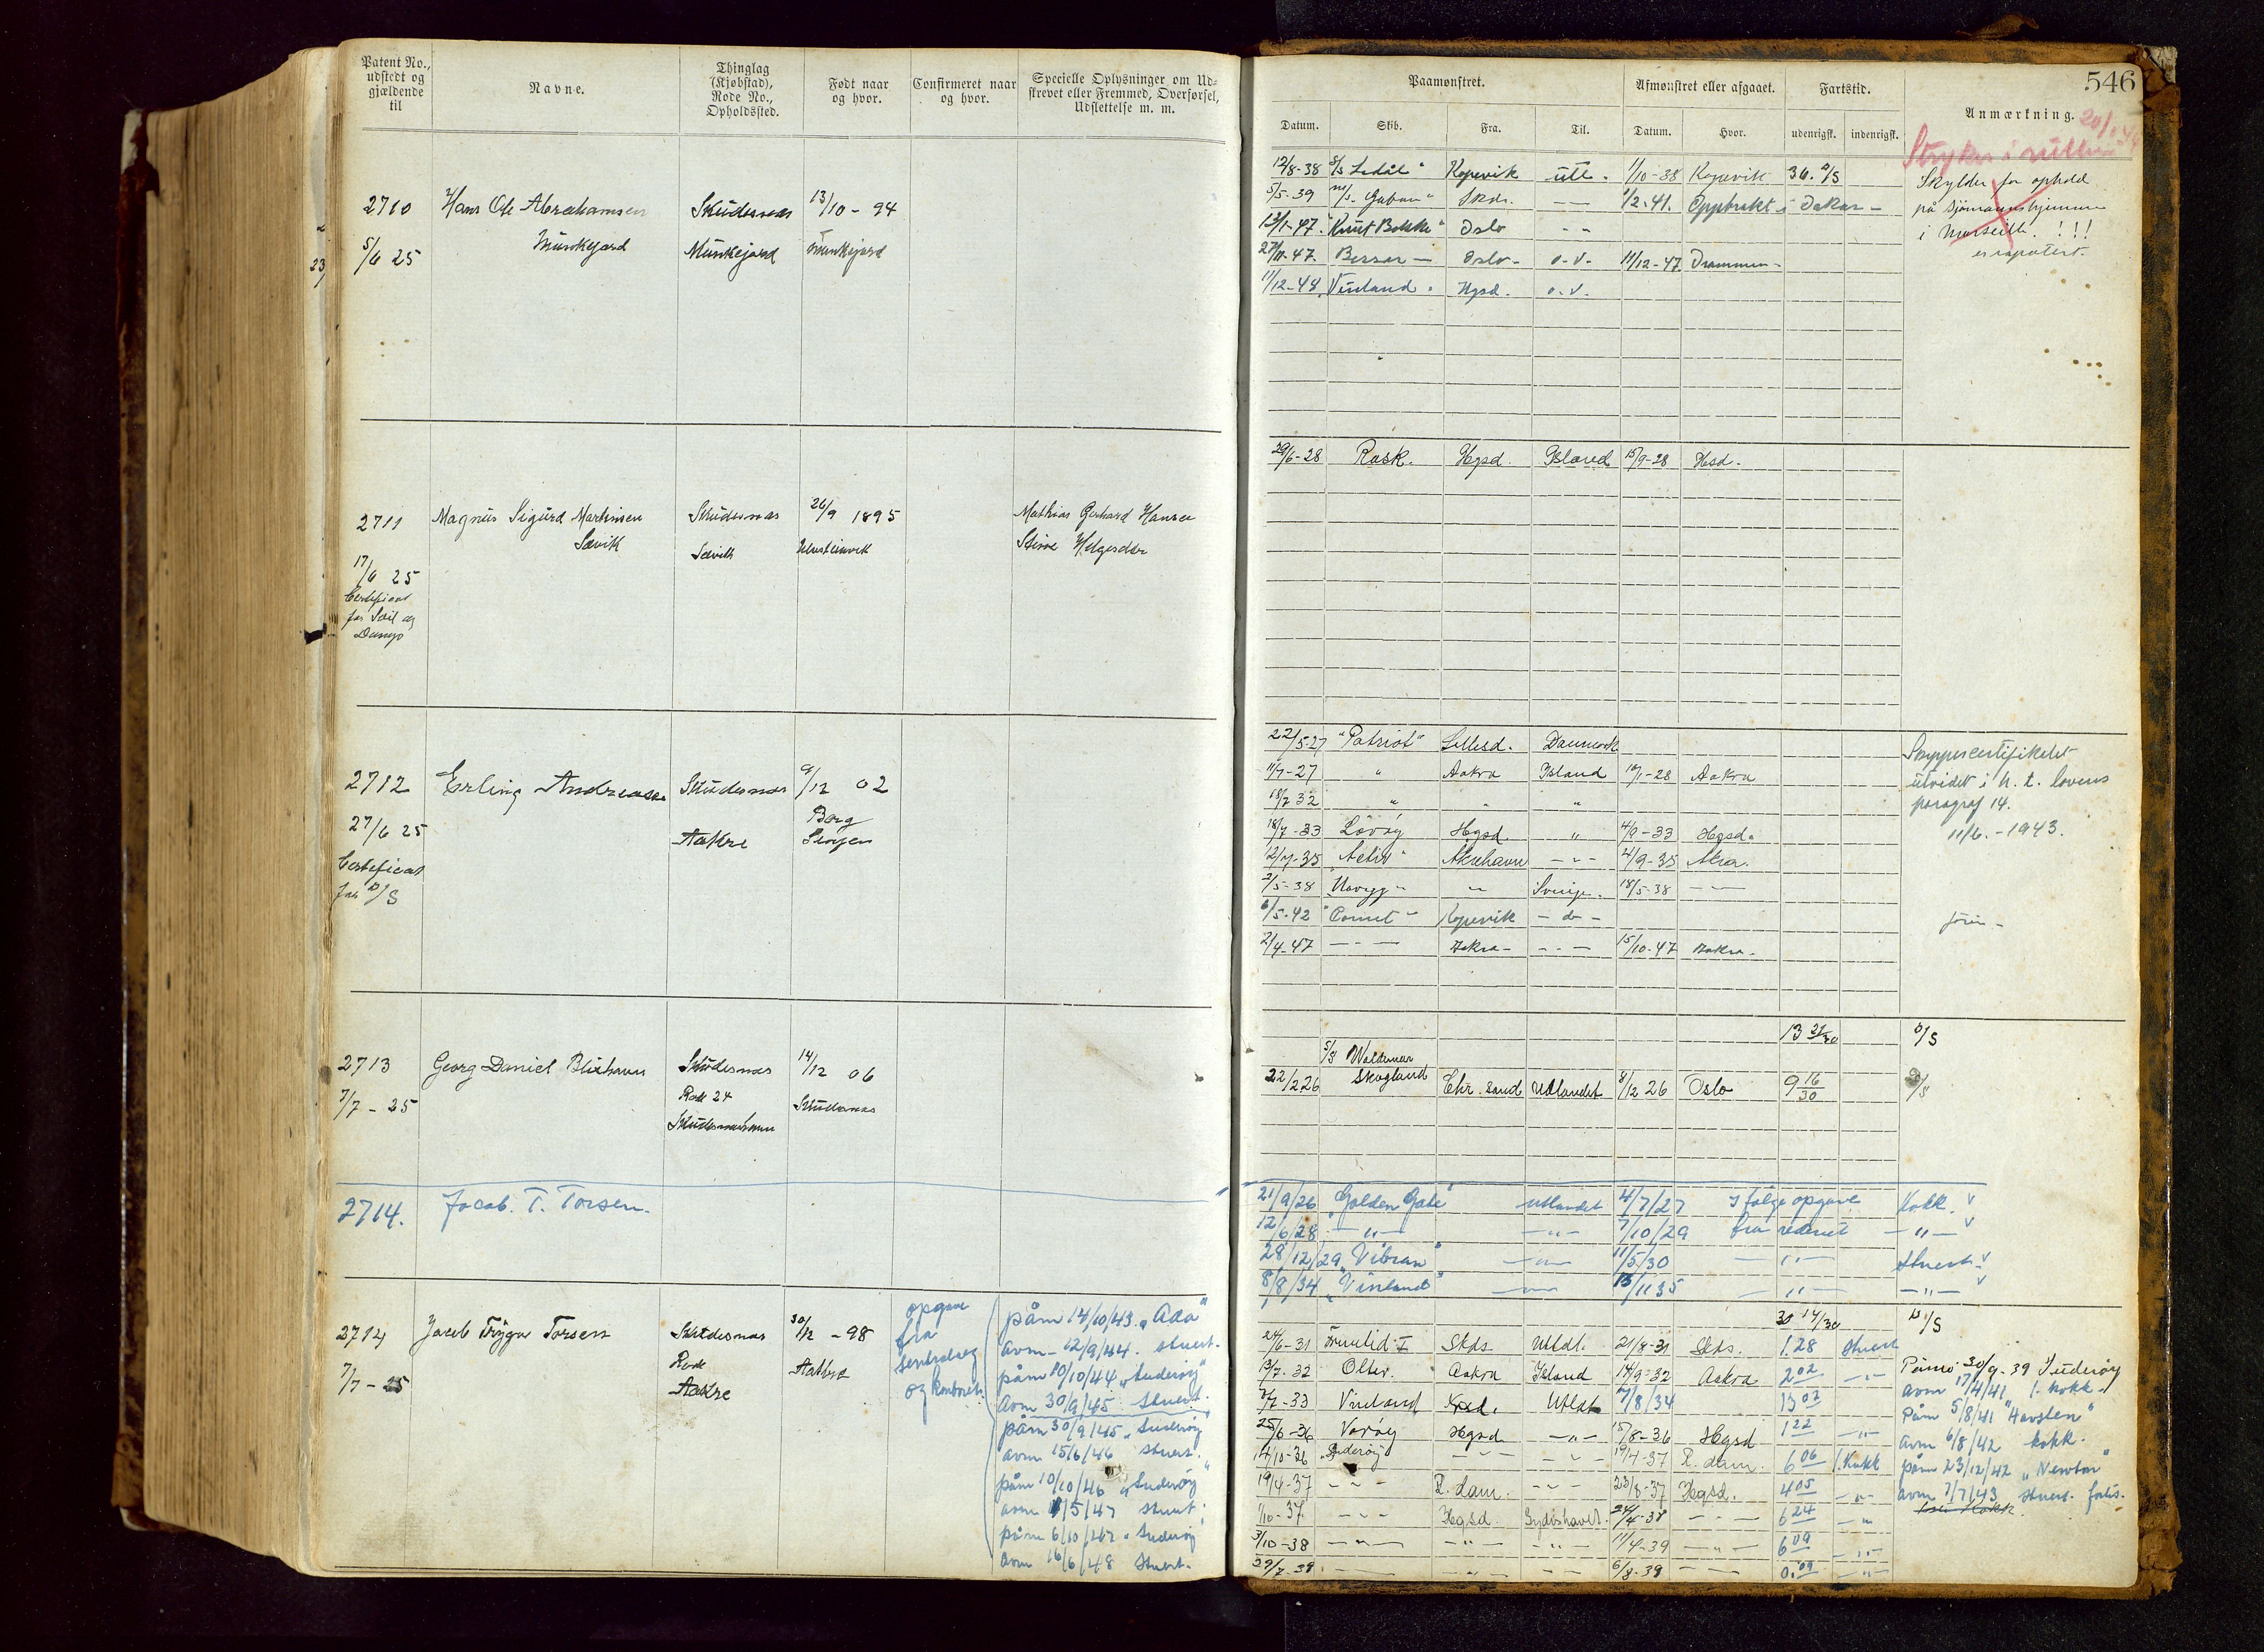 Patent No., udstedt og gjældende til
Navne.
Thinglag (Kjøbstad), Rode No., Opholdssted.
Født naar og hvor.
Confirmeret naar og hvor.
Specielle Oplysninger om Udskrevet eller Fremmed, Overførsel, Udslettelse m. m.
2710 Hans Ole Abrahamsen Skudesnæs 13/10 - 94
5/6 25 Munkejord Munkejord Munkejord
23
2711 Magnus Sigurd Martinsen Skudesnæs 26/9 1895 Mathias Gerhard Hansen
Sævik Sævik
17/6 25
Certificat
for Seil og
Damp
2712 Erling Andreassen Skudesnæs 9/12 02
27/6 25 Aakre
Certificat
for D/S
2713 Georg Daniel Blixhavn Skudesnæs 14/12 06
7/7 - 25 Rode 24 Skudesnæs
Skudesneshavn
2714. Jacob. T. Torsen.
2714 Jacob Trygve Torsen Skudesnæs 30/12 - 98
7/7 - 25 Rode Aakre
Aakre
opgave
fra
og kontoret
påm 14/10/43 „Ada"
avm - 12/9/44. stuert.
påm 10/10/44 „Suderøy"
avm 30/9/45 Stuert.
påm 30/9/45 „Suderøy"
avm 15/6/46 stuert.
påm 10/10/46 „Suderøy"
avm /5/47 stuert.
påm 6/10/47 „Suderøy
avm 16/6/48 stuert.
546
Paamønstret.
Afmønstret eller afgaaet.
Fartstid.
Anmærkning.
Datum. Skib. Fra. Til. Datum. Hvor. udenrigsk. indenrigsk.
Strykes i rullen
12/8-38 Kopevik utl. 1/10-38 Kopevik 36. D/S
Skylder for ophold
5/5-39 M/S Gabon" Skdn. -- 1/2-41. Opptrekt i Dakar -
på sjømannshjemmet
13/1-47 "Knut Bakke" Oslo --
i Marseille. !!!
27/10-47. Bessa - Oslo - o.v. 11/12-47 Drammen -
11/12-48 Vinland. Hgsd. o.v.
29/6-28 Rask. Hgsd. Island 15/9-28 Hsd.
22/5-27 "Patriot" Lillesd. Danmark
Skippercertifikatet
11/7-27 " Aakra Island 10/1-28 Aakra
utvidet i h. t. lovens
18/7 32 " " "
paragraf 14.
18/7-33 Løvøy Hgsd. " 4/9-33 Hgsd.
11/6. - 1943.
12/7-35 Activ" Akrehavn --- 4/9-35 Akra.
2/5-38 -"- Sverige. 18/5-38 ---
6/5-42 "Comet" Kopevik - do -
2/4-47 --- Aakra - --- 15/10-47 Aakra.
13 21/30 D/S
S/S Waldemar
22/2 26 Skogland Chr. sand Udlandet 8/12 26 Oslo 9 16/30 D/S
21/9/26 „Golden Gate" Utlandet 4/7/27 Ifølge opgave Kokk. v
12/6/28 -"- -"- 7/10/29 fra rederiet -"- v
28/12/29 „Vibran" -"- 11/5/30 -"- stuert. v
8/8/34 „Vinland" -"- 13/11 35 -"- -"- v
30 14/30 D/S
24/6-31 Utldt. 21/8-31 Skds. 1.28 stuert
13/7-32 Oliv. Aakra Island 14/9-32 Aakra 2 02 -"-
Påm 30/9. 39 Suderøy
/7-33 Vinland Utldt 7/8/34 13 02
avm 17/4/41 1. kokk.
25/6-36 Varøy Hgsd -"- 15/8-36 Hgsd 1 22 -"-
Påm 5/8/41 "Havsten"
14/10-36 Suderøy -"- -"- 19/4-37 R. dam. 6 06 1. Kokk
avm 6/8/42 kokk.
19/4-37 --- R. dam. --- 23/8-37 Hgsd. 4 05 -"-
påm 23/12/42 „Newton"
1/10-37 --- Hgsd. Sydishavet. 24/4-38 --- 6 24 -"-
avm 7/7/43 stuert.
3/10-38 -"- -"- -"- 11/4-39 -"- 6 09 -"-
29/7-39 -"- -"- -- 6/8-39 -- 0.09 -"-